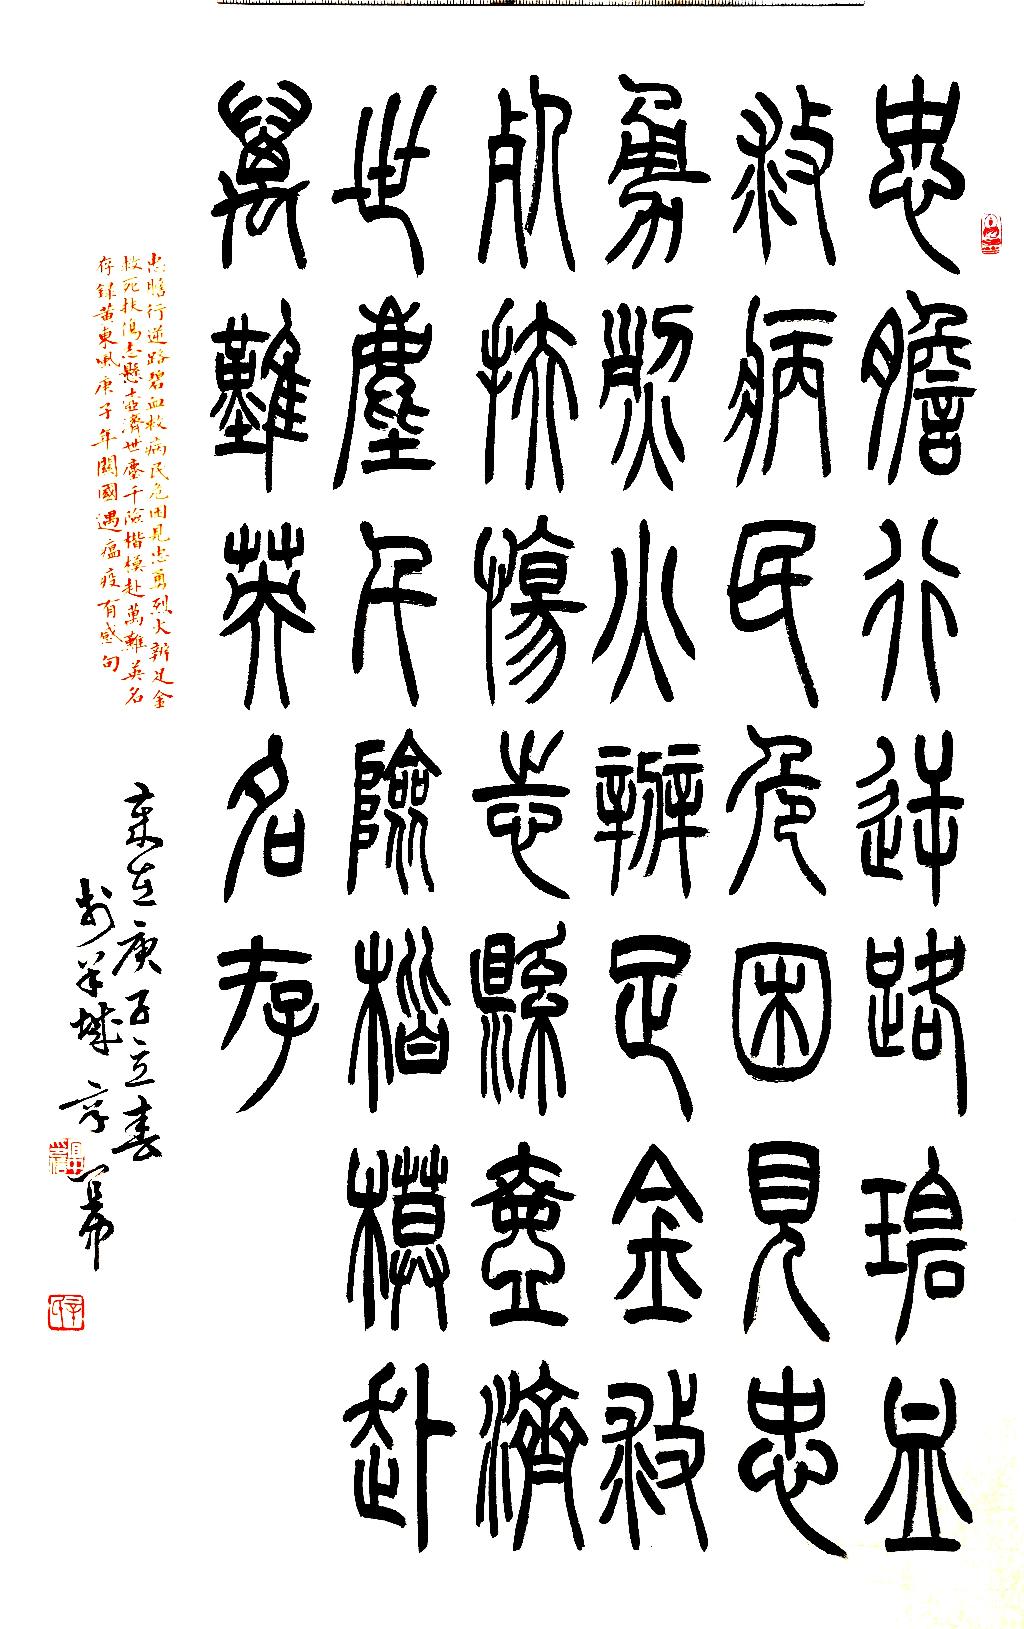 忠膽行逆路碧血
救病民危困見忠
勇烈火辨足金救
死扶傷志縣壺濟
世塵千險楷模赴
萬難英名存
忠膽行逆路碧血救病民危困見忠勇烈火辨足金
救死扶傷志懸壺濟世塵千險楷模赴萬難英名
存錄黃東風庚子年閧國遇瘟疫有感句
歲在庚子立春
於羊城